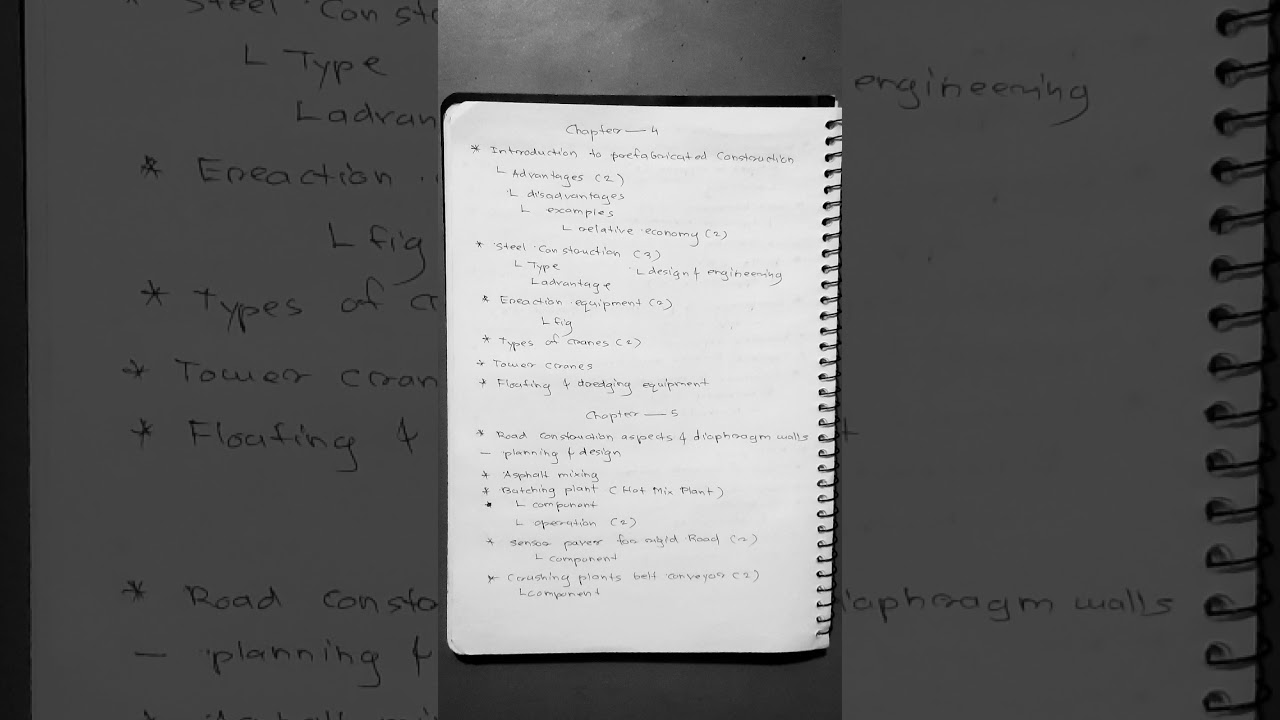 Chapter — 4
* Introduction to prefabricated construction
└ Advantages (2)
└ disadvantages
└ examples
└ relative economy (2)
* Steel Construction (3)
└ Type └ design & engineering
└ advantage
* Ereaction equipment (2)
└ fig
* Types of cranes (2)
* Tower cranes
* Floating & dredging equipment
Chapter — 5
* Road construction aspects & diaphragm walls
— planning & design
* Asphalt mixing
* Batching plant (Hot Mix Plant)
* └ component
└ operation (2)
* sensor paver for rigid Road (2)
└ component
* Crushing plants belt conveyor (2)
└ component